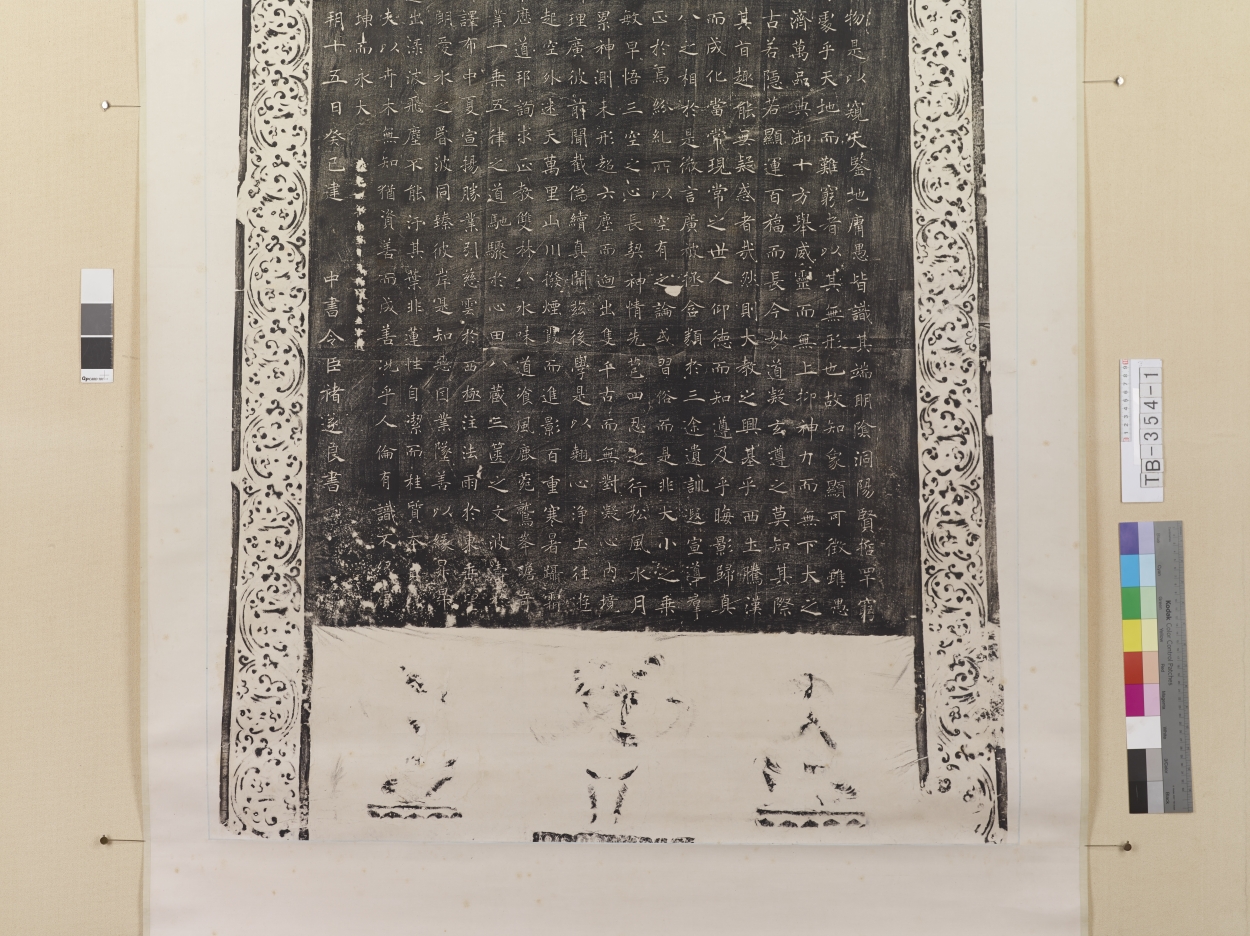 物是以窺天鑒地庸愚皆識其端明陰洞陽賢哲罕窮
處乎天地而難窮者以其無形也故知象顯可徵雖愚
濟萬品典御十方舉威靈而無上抑神力而無下大之
古若隱若顯運百福而長今妙道凝玄遵之莫知其際
其旨趣能無疑惑者哉然則大教之興基乎西土騰漢
而成化當常現常之世人仰德而知遵及乎晦影歸真
八之相於是微言廣被拯含類於三途遺訓遐宣導羣
正於焉紛糺所以空有之論或習俗而是非大小之乘
敏早悟三空之心長契神情先苞四忍之行松風水月
累神測未形超六塵而迥出隻千古而無對凝心內境
理廣彼前聞截偽續真開茲後學是以翹心淨土往遊
起空外迷天萬里山川撥煙霞而進影百重寒暑躡霜
應道邦詢求正教雙林八水味道飡風鹿菀鷲峯瞻奇
業一乘五律之道馳驟於心田八藏三篋之文波濤
譯布中夏宣揚勝業引慈雲於西極注法雨於東垂
朗愛水之昏波同臻彼岸是知惡因業墜善以緣昇
出淥波飛塵不能汙其葉非蓮性自潔而桂質本
夫以卉木無知猶資善而成善況乎人倫有識不緣
坤而永大
朔十五日癸巳建 中書令臣褚遂良書
TB-354-1
Kodak Color Control Patches